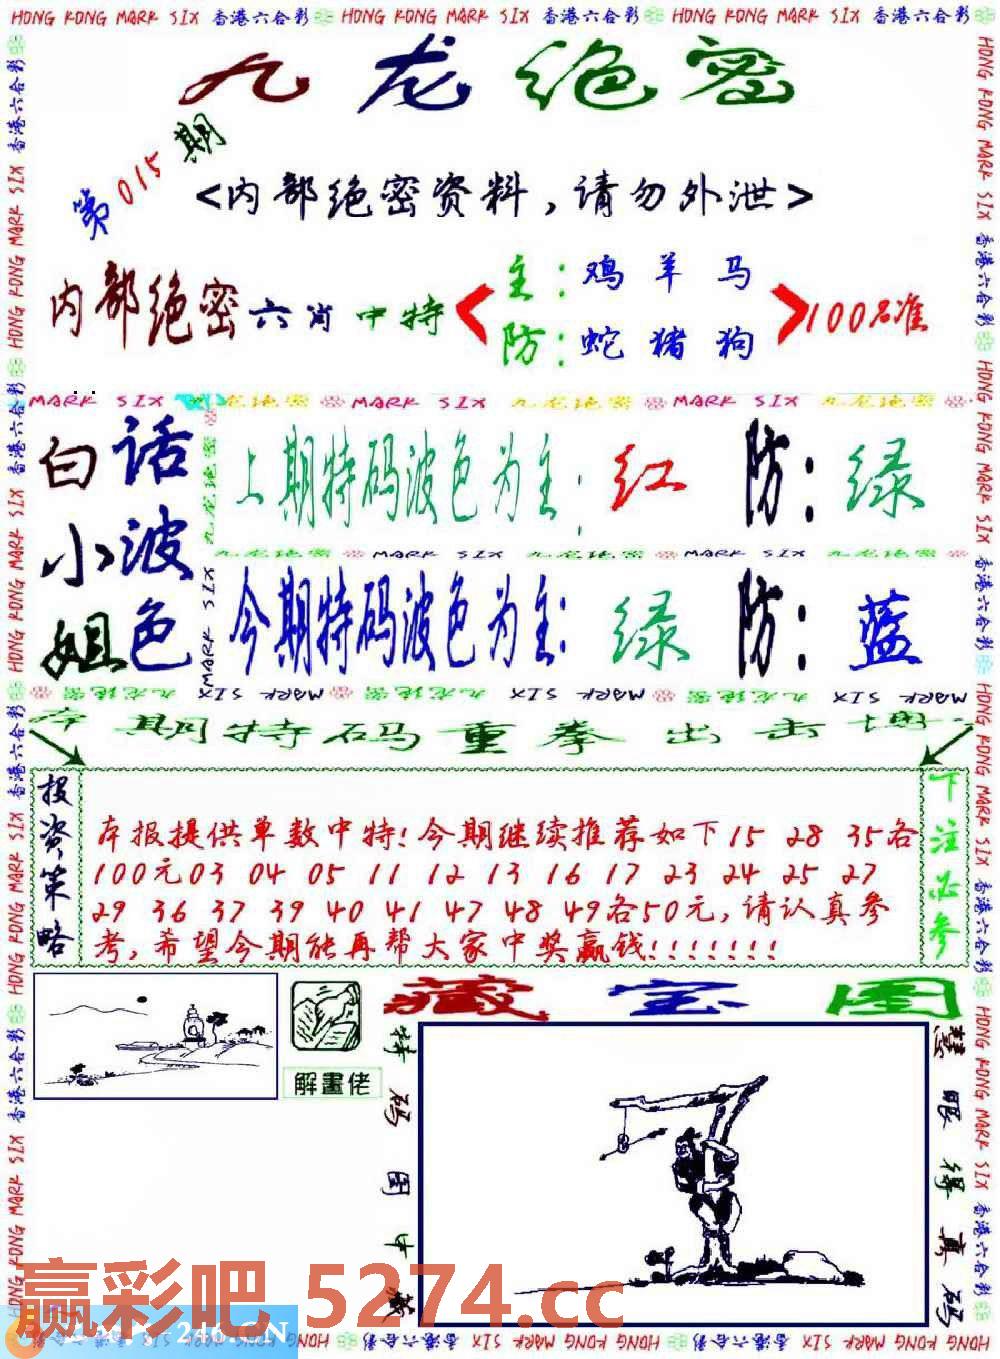 HONG KONG MARK SIX 香港六合彩 HONG KONG MARK SIX 香港六合彩 HONG KONG MARK SIX 香港六合彩
九龙绝密
第015期
<内部绝密资料,请勿外泄>
内部绝密六肖中特
主:鸡羊马
防:蛇猪狗
100%准
MARK SIX 九龙绝密 MARK SIX 九龙绝密 MARK SIX 九龙绝密
白小姐
话波色
上期特码波色为主:红 防:绿
九龙绝密 MARK SIX 九龙绝密 MARK SIX 九龙绝密
今期特码波色为主:绿 防:蓝
本期特码重拳出击
投资策略
本报提供单数中特!今期继续推荐如下15 28 35各
100元03 04 05 11 12 13 16 17 23 24 25 27
29 36 37 39 40 41 47 48 49各50元,请认真参
考,希望今期能再帮大家中奖赢钱!!!!!!!
下注必参
解畫佬
藏宝图
特码图中藏
慧眼得真码
赢彩吧 5274.cc
246.CN